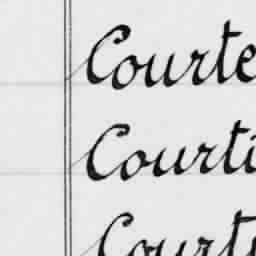 Courte
Courti
Court